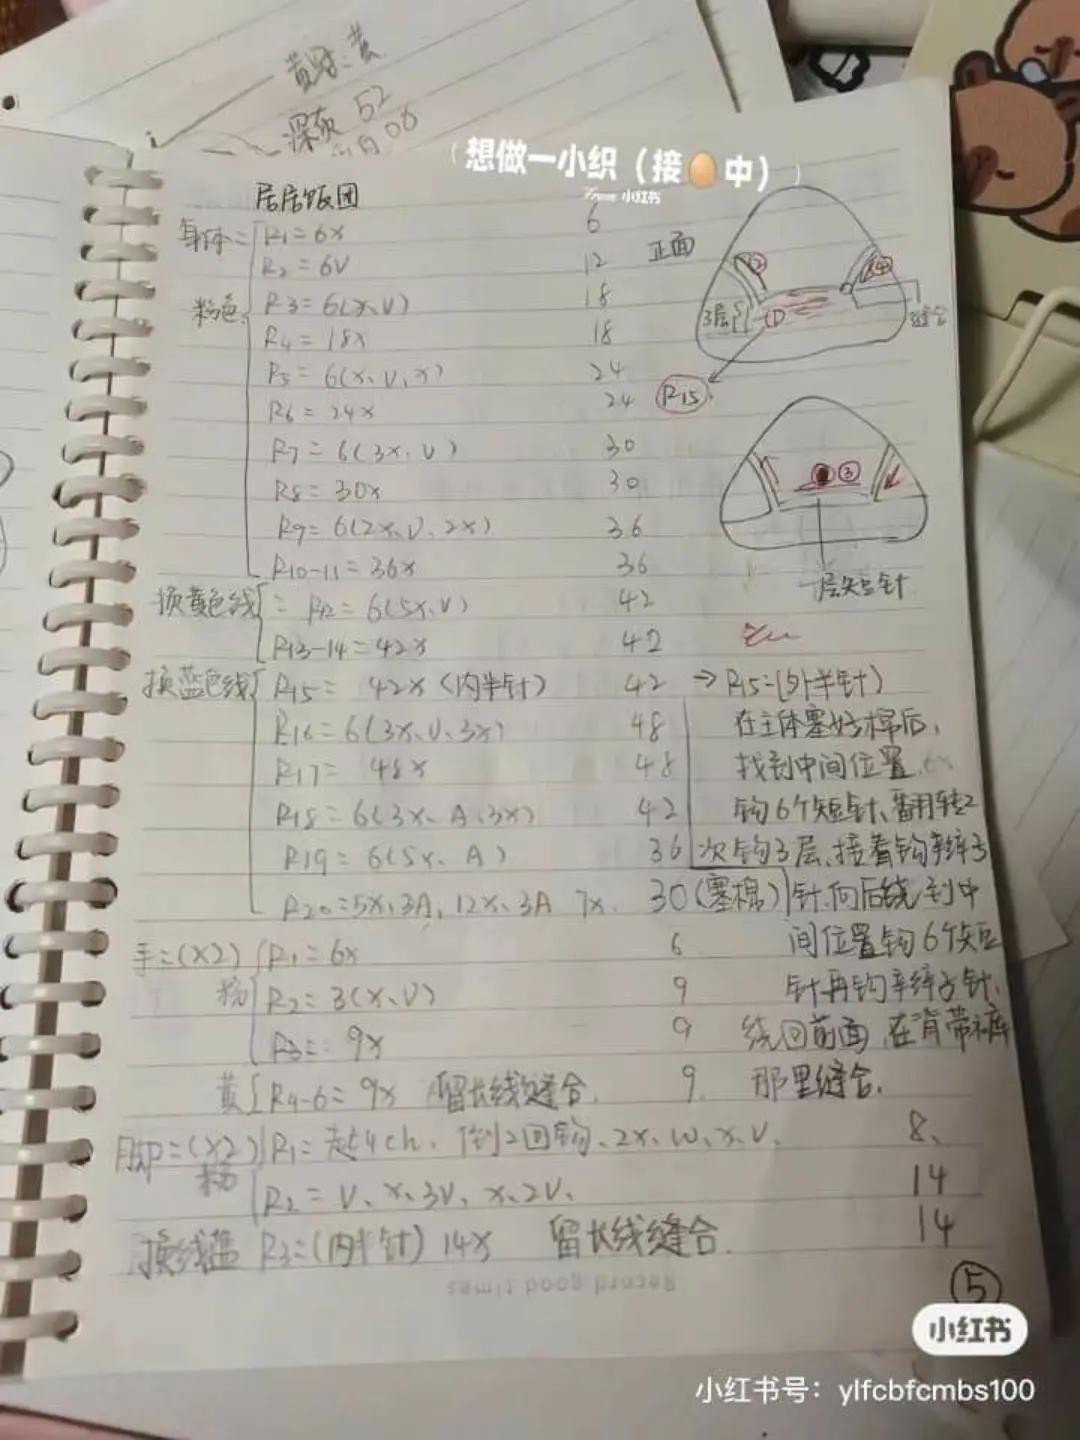 黄
深灰 52
08
想做一小织（接🥚中）
小红书
居居饭团
身体= R1=6x 6
R2=6V 12
粉色 R3=6(x、V) 18
R4=18x 18
R5=6(x、V、x) 24
R6=24x 24
R7=6(3x、V) 30
R8=30x 30
R9=6(2x、V、2x) 36
R10-11=36x 36
换黄色线 R12=6(5x、V) 42
R13-14=42x 42
换蓝色线 R15= 42x(内半针) 42
R16=6(3x、V、3x) 48
R17= 48x 48
R18=6(3x、A、3x) 42
R19=6(5x、A) 36
R20=5x、3A、12x、3A 7x. 30(塞棉)
正面
② ④
3层 ① 缝合
R15
③
层短针
→R15=(外半针)
在主体塞好棉后,
找到中间位置 6x
钩6个短针、翻转2
次钩3层、接着钩辫子
针、向后绕到中
间位置钩6个短
针再钩辫子针、
绕回前面、在背带裤
那里缝合.
手=(x2) R1=6x 6
粉 R2=3(x、V) 9
R3= 9x 9
黄 R4-6=9x 留长线缝合. 9.
脚=(x2) R1=起4ch、倒2回钩、2x、W、x、V、 8、
粉 R2=V、x、3V、x、2V、 14
换线蓝 R3=(内半针) 14x 留长线缝合. 14
Record good times
⑤
小红书
小红书号：ylfcbfcmbs100